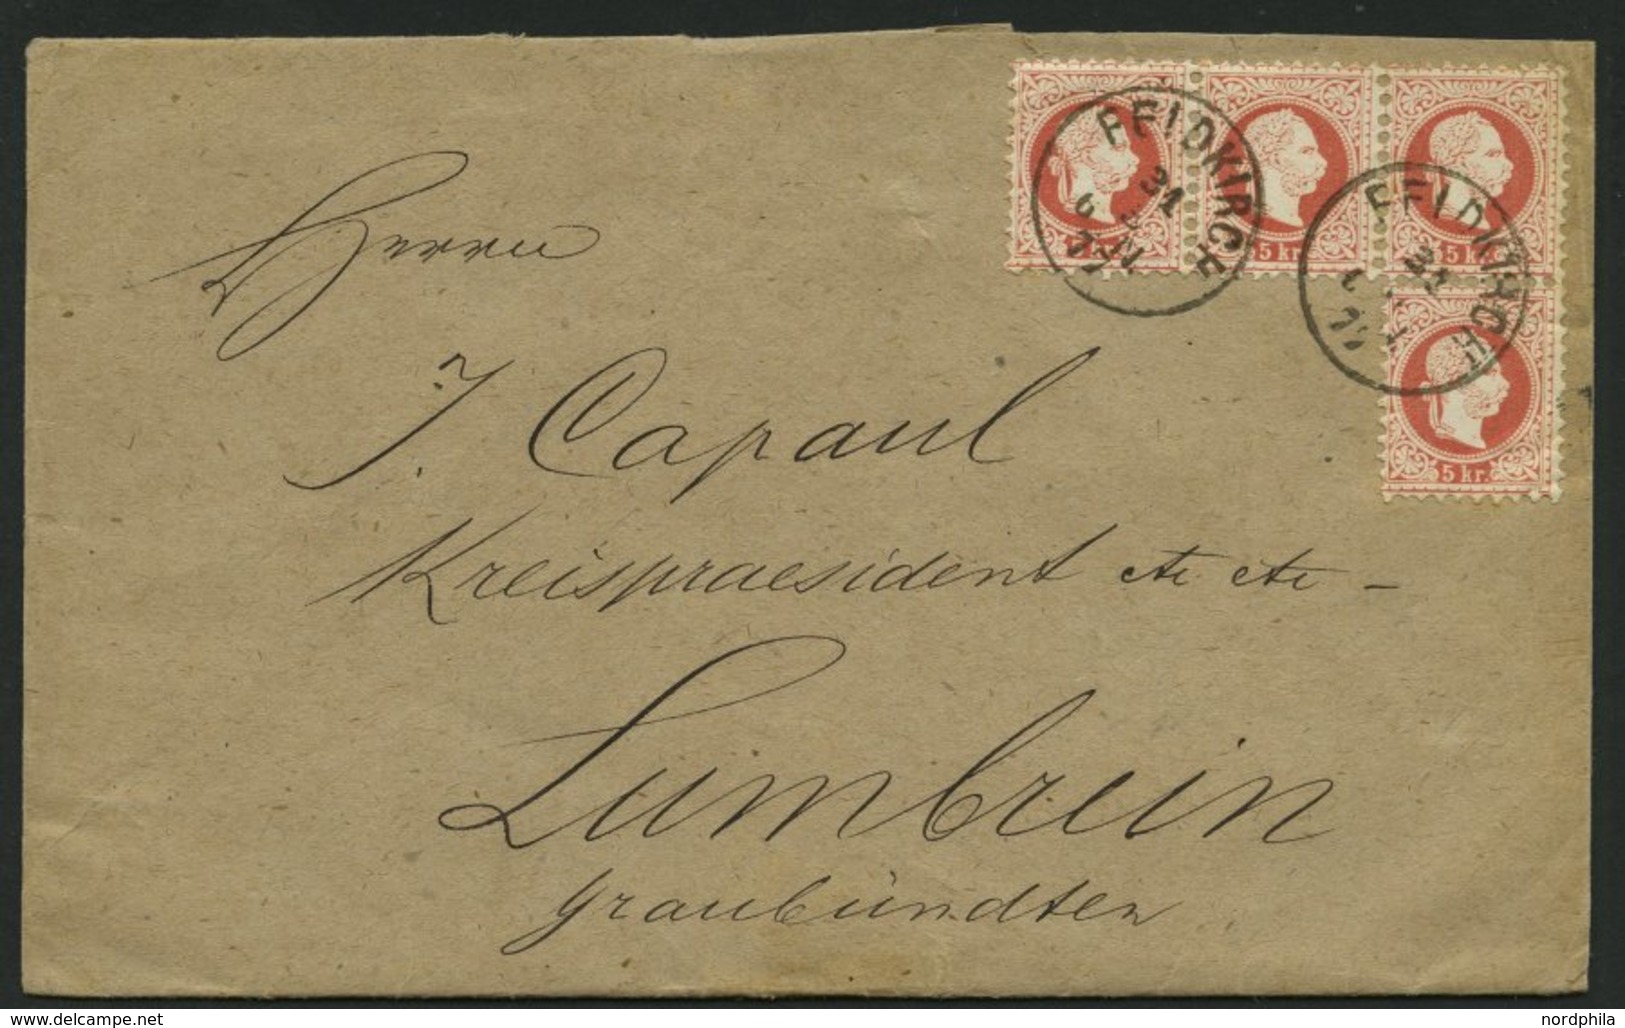 FELDKIRCH
31
FELDKIRCH
31
5 kr.
5 kr.
5 kr.
Herrn
J. Capaul
Kreispraesident etc etc –
Lumbrein
Graubündten
www.delcampe.net
nordphila